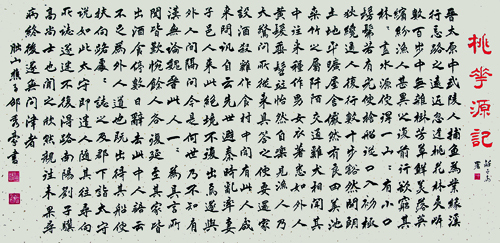 桃花源記
晉太原中武陵人捕魚為業緣溪
行忘路之遠近忽逢桃花林夾岸
數百步中無雜樹芳草鮮美落英
繽紛漁人甚異之復前行欲窮其
林林盡水源便得一山山有小口
髣髴若有光便舍船從口入初極
狹纔通人復行數十步豁然開朗
土地平曠屋舍儼然有良田美池
桑竹之屬阡陌交通雞犬相聞其
中往來種作男女衣著悉如外人
黃髮垂髫並怡然自樂見漁人乃
大驚問所從來具答之便要還家
設酒殺雞作食村中聞有此人咸
來問訊自云先世避秦時亂率妻
子邑人來此絕境不復出焉遂與
外人間隔問今是何世乃不知有
漢無論魏晉此人一一為具言所
聞皆歎惋餘人各復延至其家皆
出酒食停數日辭去此中人語云
不足為外人道也既出得其船便
扶向路處處誌之及郡下詣太守
說如此太守即遣人隨其往尋向
所誌遂迷不復得路南陽劉子驥
高尚士也聞之欣然規往未果尋
病終後遂無問津者